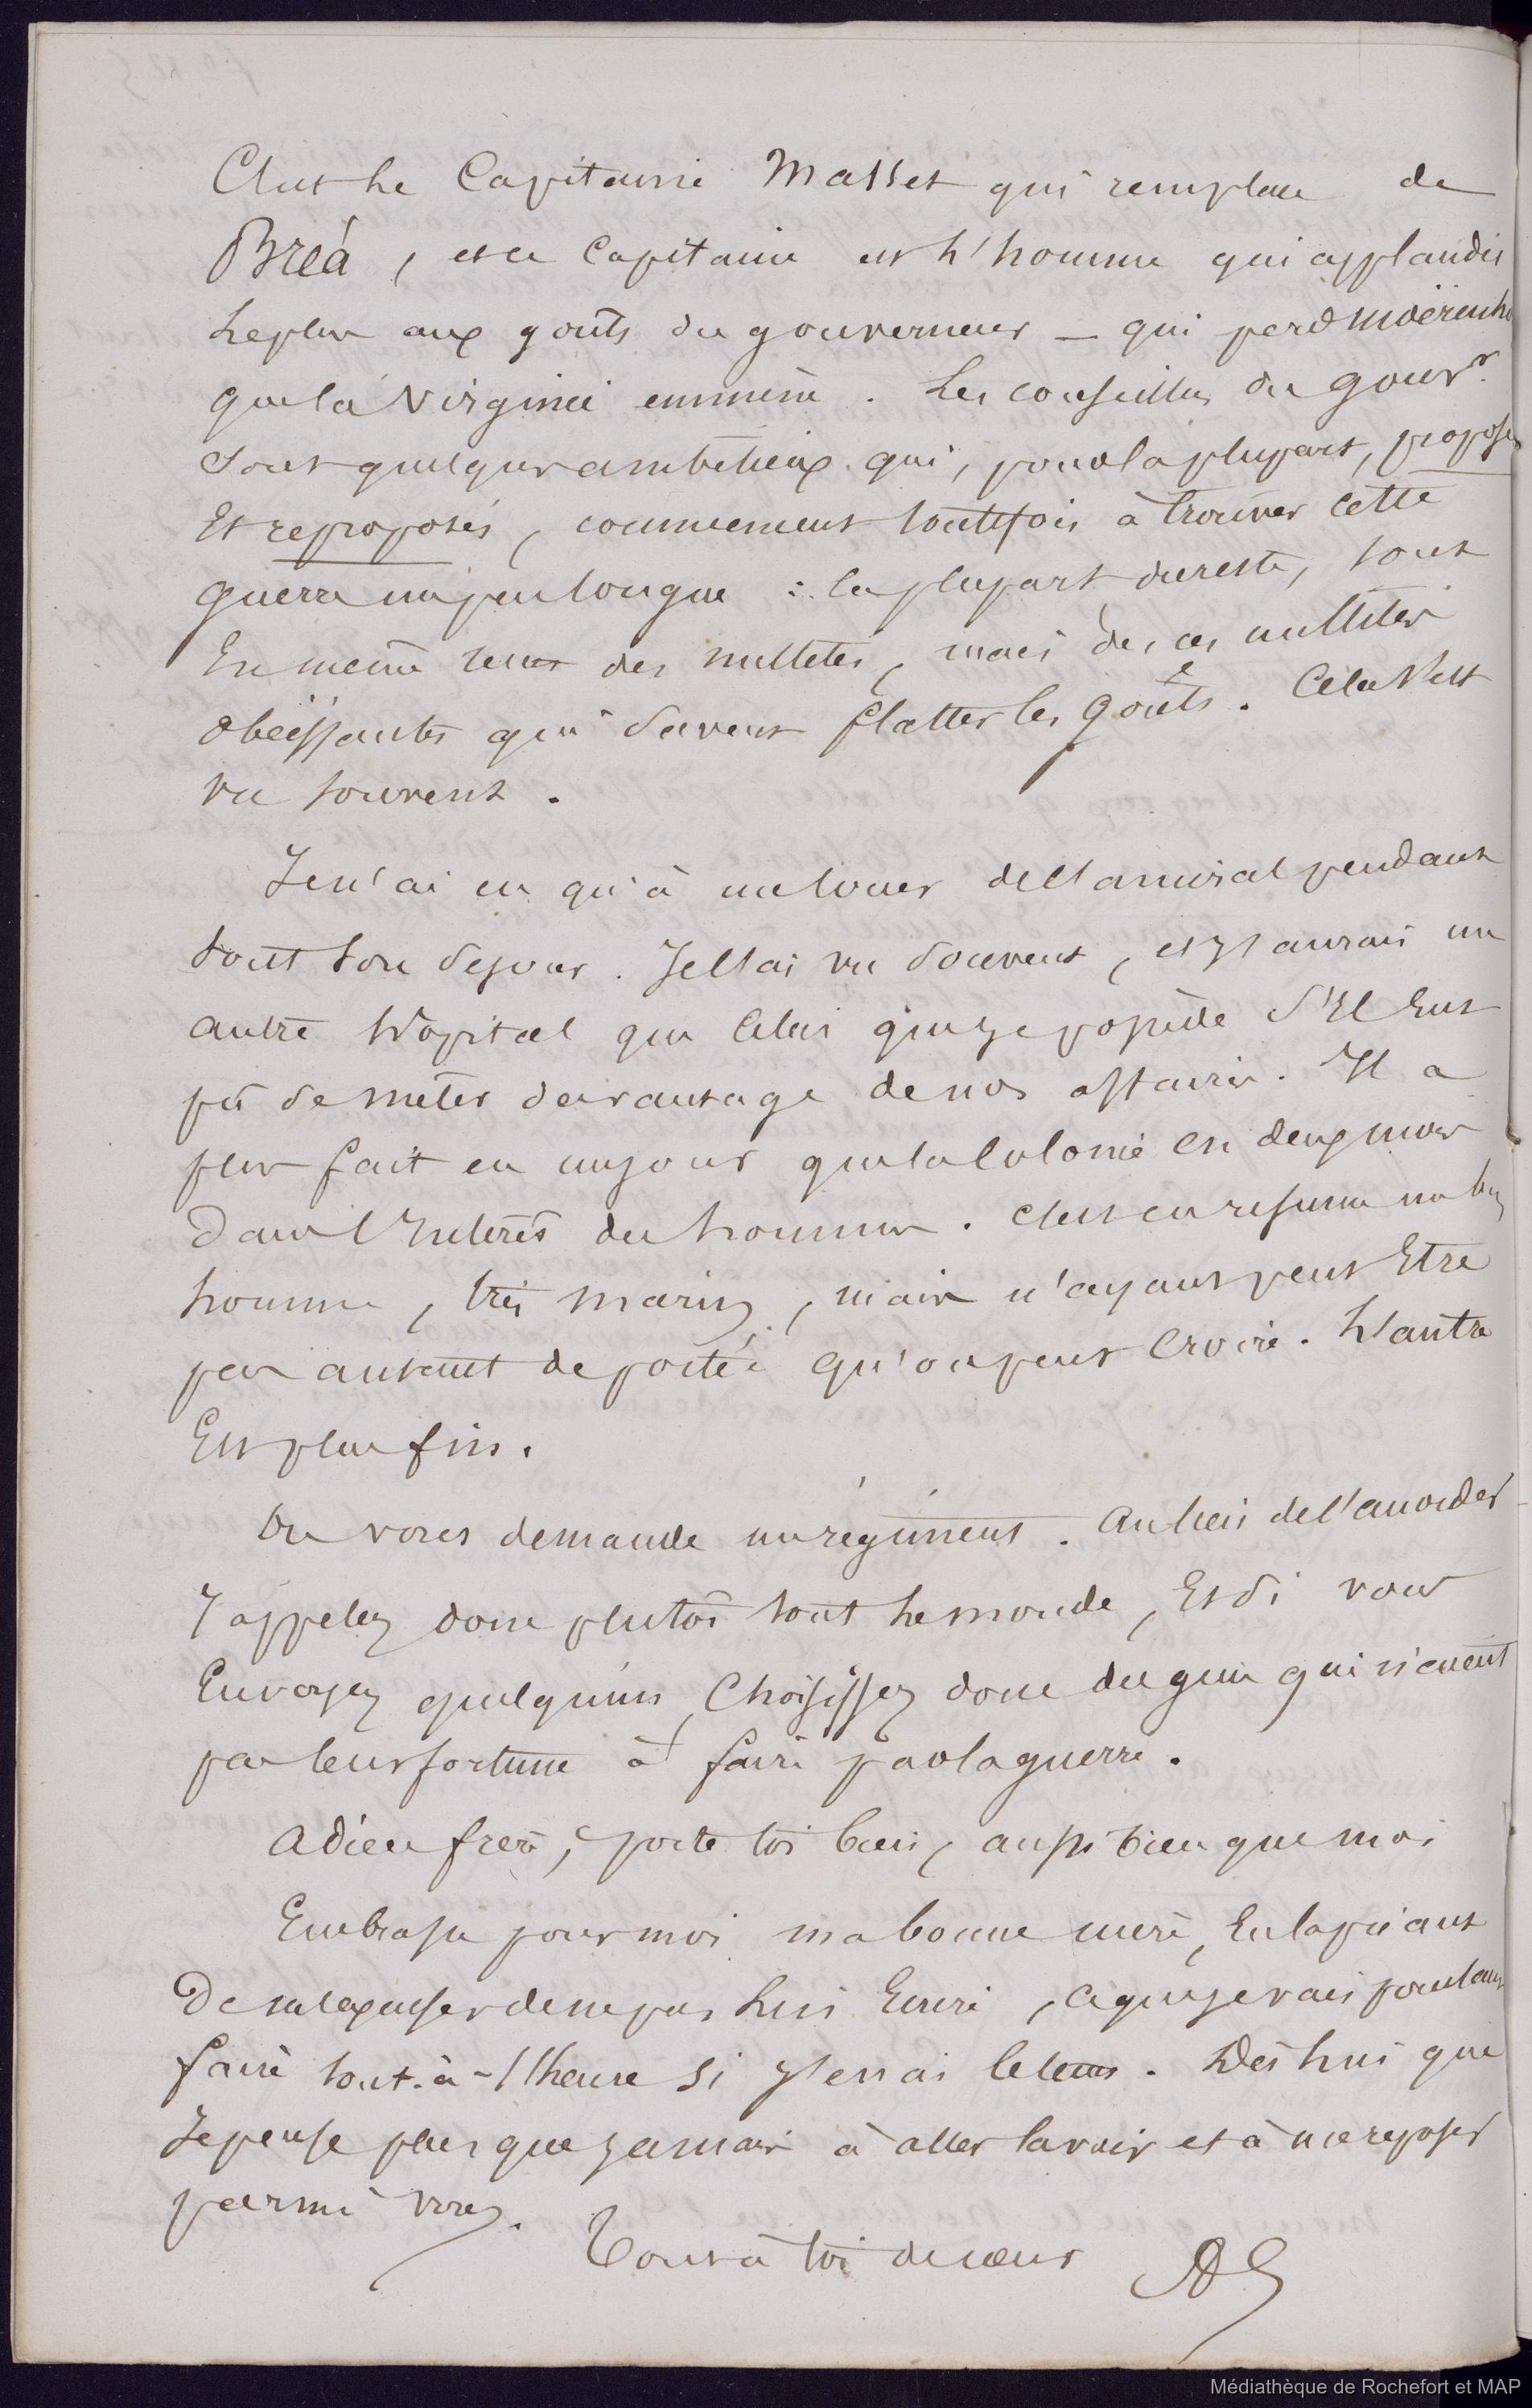 C'est le Capitaine Masset qui remplace de
Bréa, et ce Capitaine est l'homme qui applaudis
le plus aux goûts du gouverneur — qui perd Moërenho
que la Virginie emmène. Les conseillers du gouvr.
sont quelques ambitieux qui, pour la plupart, proposés
Et reproposés, commencent toutefois à trouver cette
guerre un peu longue : la plupart du reste, sont
En même tems des nullités, mais de ces nullités
obéissantes qui savent flatter les goûts. Cela s'est
vu souvent.
Je n'ai eu qu'à me louer de l'amiral pendant
tout son séjour. Je l'ai vu souvent, et j'aurais un
autre hôpital que celui que je possède s'Il Eut
pû se mêler davantage de nos affaires. Il a
plus fait en un jour que la Colonie en deux mois
dans l'Intérêt des hommes. C'est en résumé un bon
homme, très marin, mais n'ayant peut Etre
pas autant de portée qu'on peut Croire. L'autre
Est plus fin.
On vous demande un régiment. Au lieu de l'accorder
rappelez donc plutôt tout le monde, Et si vous
Envoyez quelqu'un, Choisissez donc des gens qui n'aient
pas leur fortune à faire par la guerre.
Adieu frère, porte toi bien, aussi bien que moi
Embrasse pour moi ma bonne mère, En la priant
De m'excuser de ne pas lui Ecrire, ce que je vais pourtant
faire tout-à-l'heure si j'en ai le tems. Dis lui que
Je pense plus que jamais à aller la voir et à me reposer
parmi vous.
Tout à toi de cœur